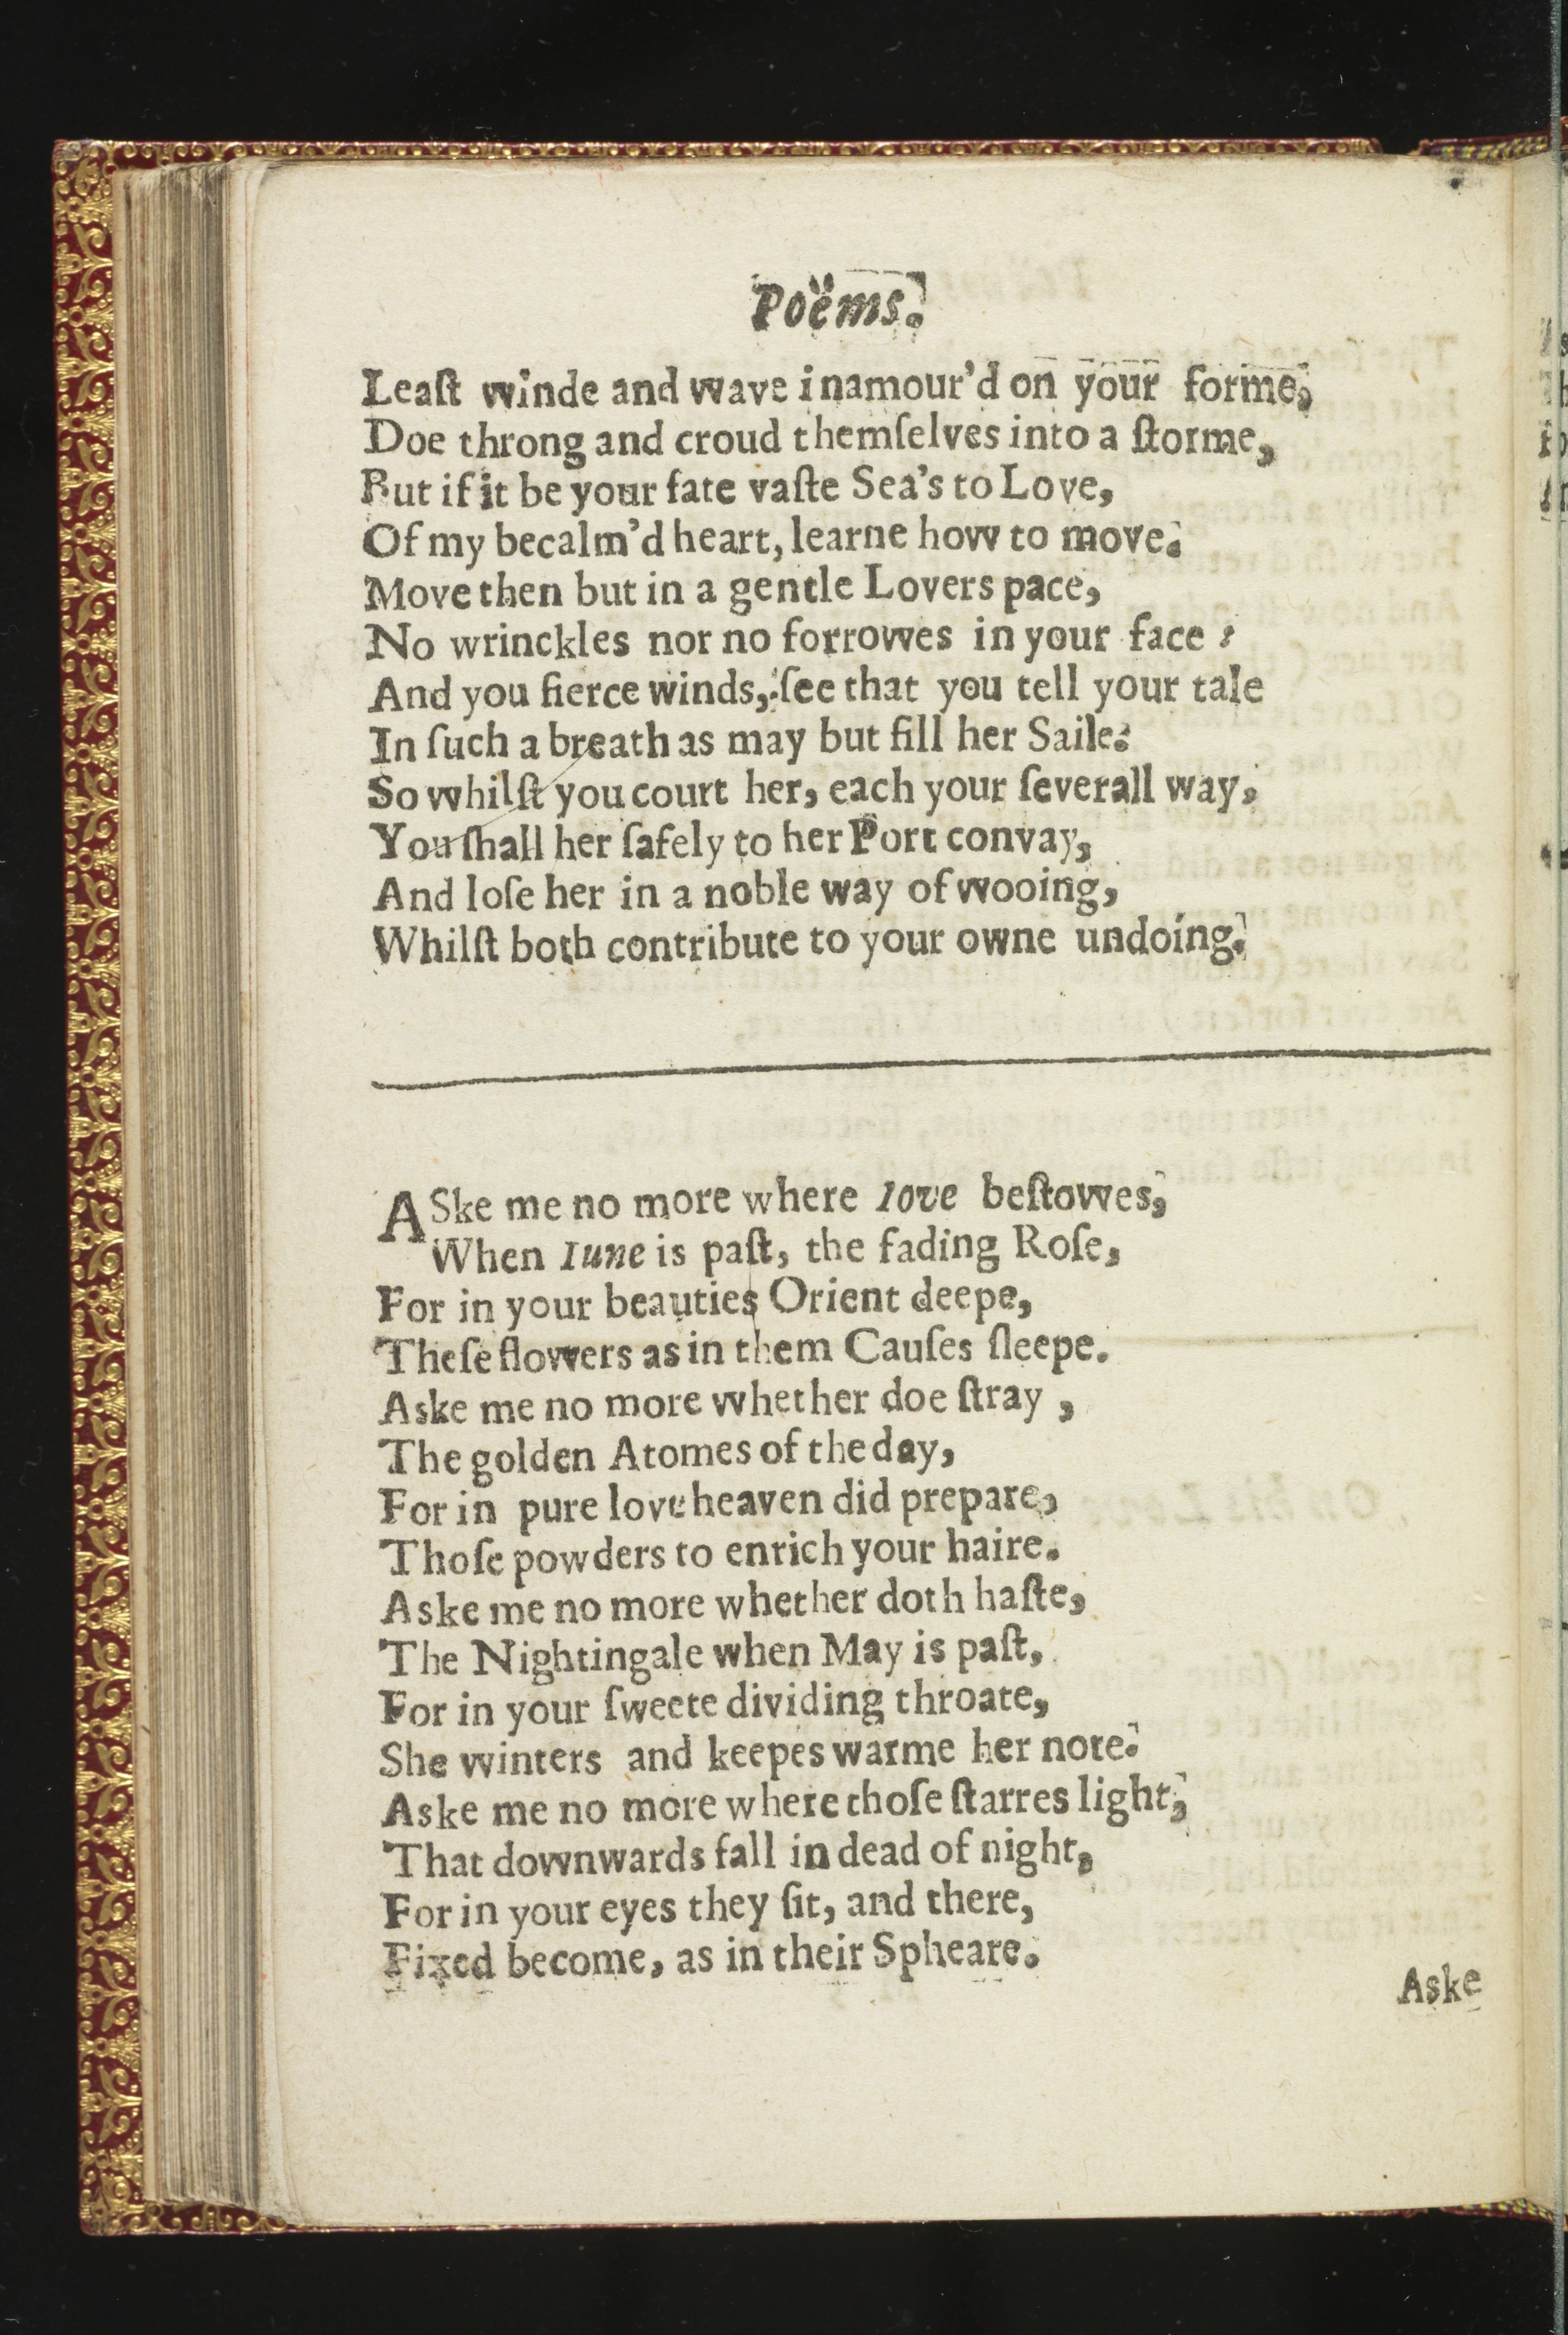 Poëms.
Leaſt winde and wave inamour'd on your forme,
Doe throng and croud themſelves into a ſtorme,
But if it be your fate vaſte Sea's to Love,
Of my becalm'd heart, learne how to move.
Move then but in a gentle Lovers pace,
No wrinckles nor no forrowes in your face:
And you fierce winds, ſee that you tell your tale
In ſuch a breath as may but fill her Saile:
So whilſt you court her, each your ſeverall way,
You ſhall her ſafely to her Port convay,
And loſe her in a noble way of wooing,
Whilſt both contribute to your owne undoing.
ASke me no more where Iove beſtowes,
When Iune is paſt, the fading Roſe,
For in your beauties Orient deepe,
Theſe flowers as in them Cauſes ſleepe.
Aske me no more whether doe ſtray,
The golden Atomes of the day,
For in pure love heaven did prepare,
Thoſe powders to enrich your haire.
Aske me no more whether doth haſte,
The Nightingale when May is paſt,
For in your ſweete dividing throate,
She winters and keepes warme her note.
Aske me no more where thoſe ſtarres light,
That downwards fall in dead of night,
For in your eyes they ſit, and there,
Fixed become, as in their Spheare.
Aske